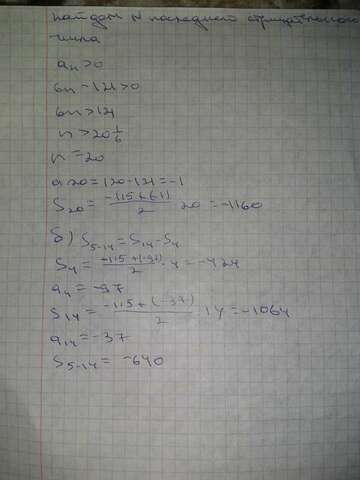 найдём N последнего отрицательного
числа
aₙ>0
6n-121>0
6n>121
n>20 1/6
n=20
a20=120-121=-1
S₂₀= -115+(-1)/2 · 20=-1160
б) S₅₋₁₄=S₁₄-S₄
S₄= -115+(-97)/2 · 4=-424
a₄=-97
S₁₄= -115+(-37)/2 · 14=-1064
a₁₄=-37
S₅₋₁₄= -640